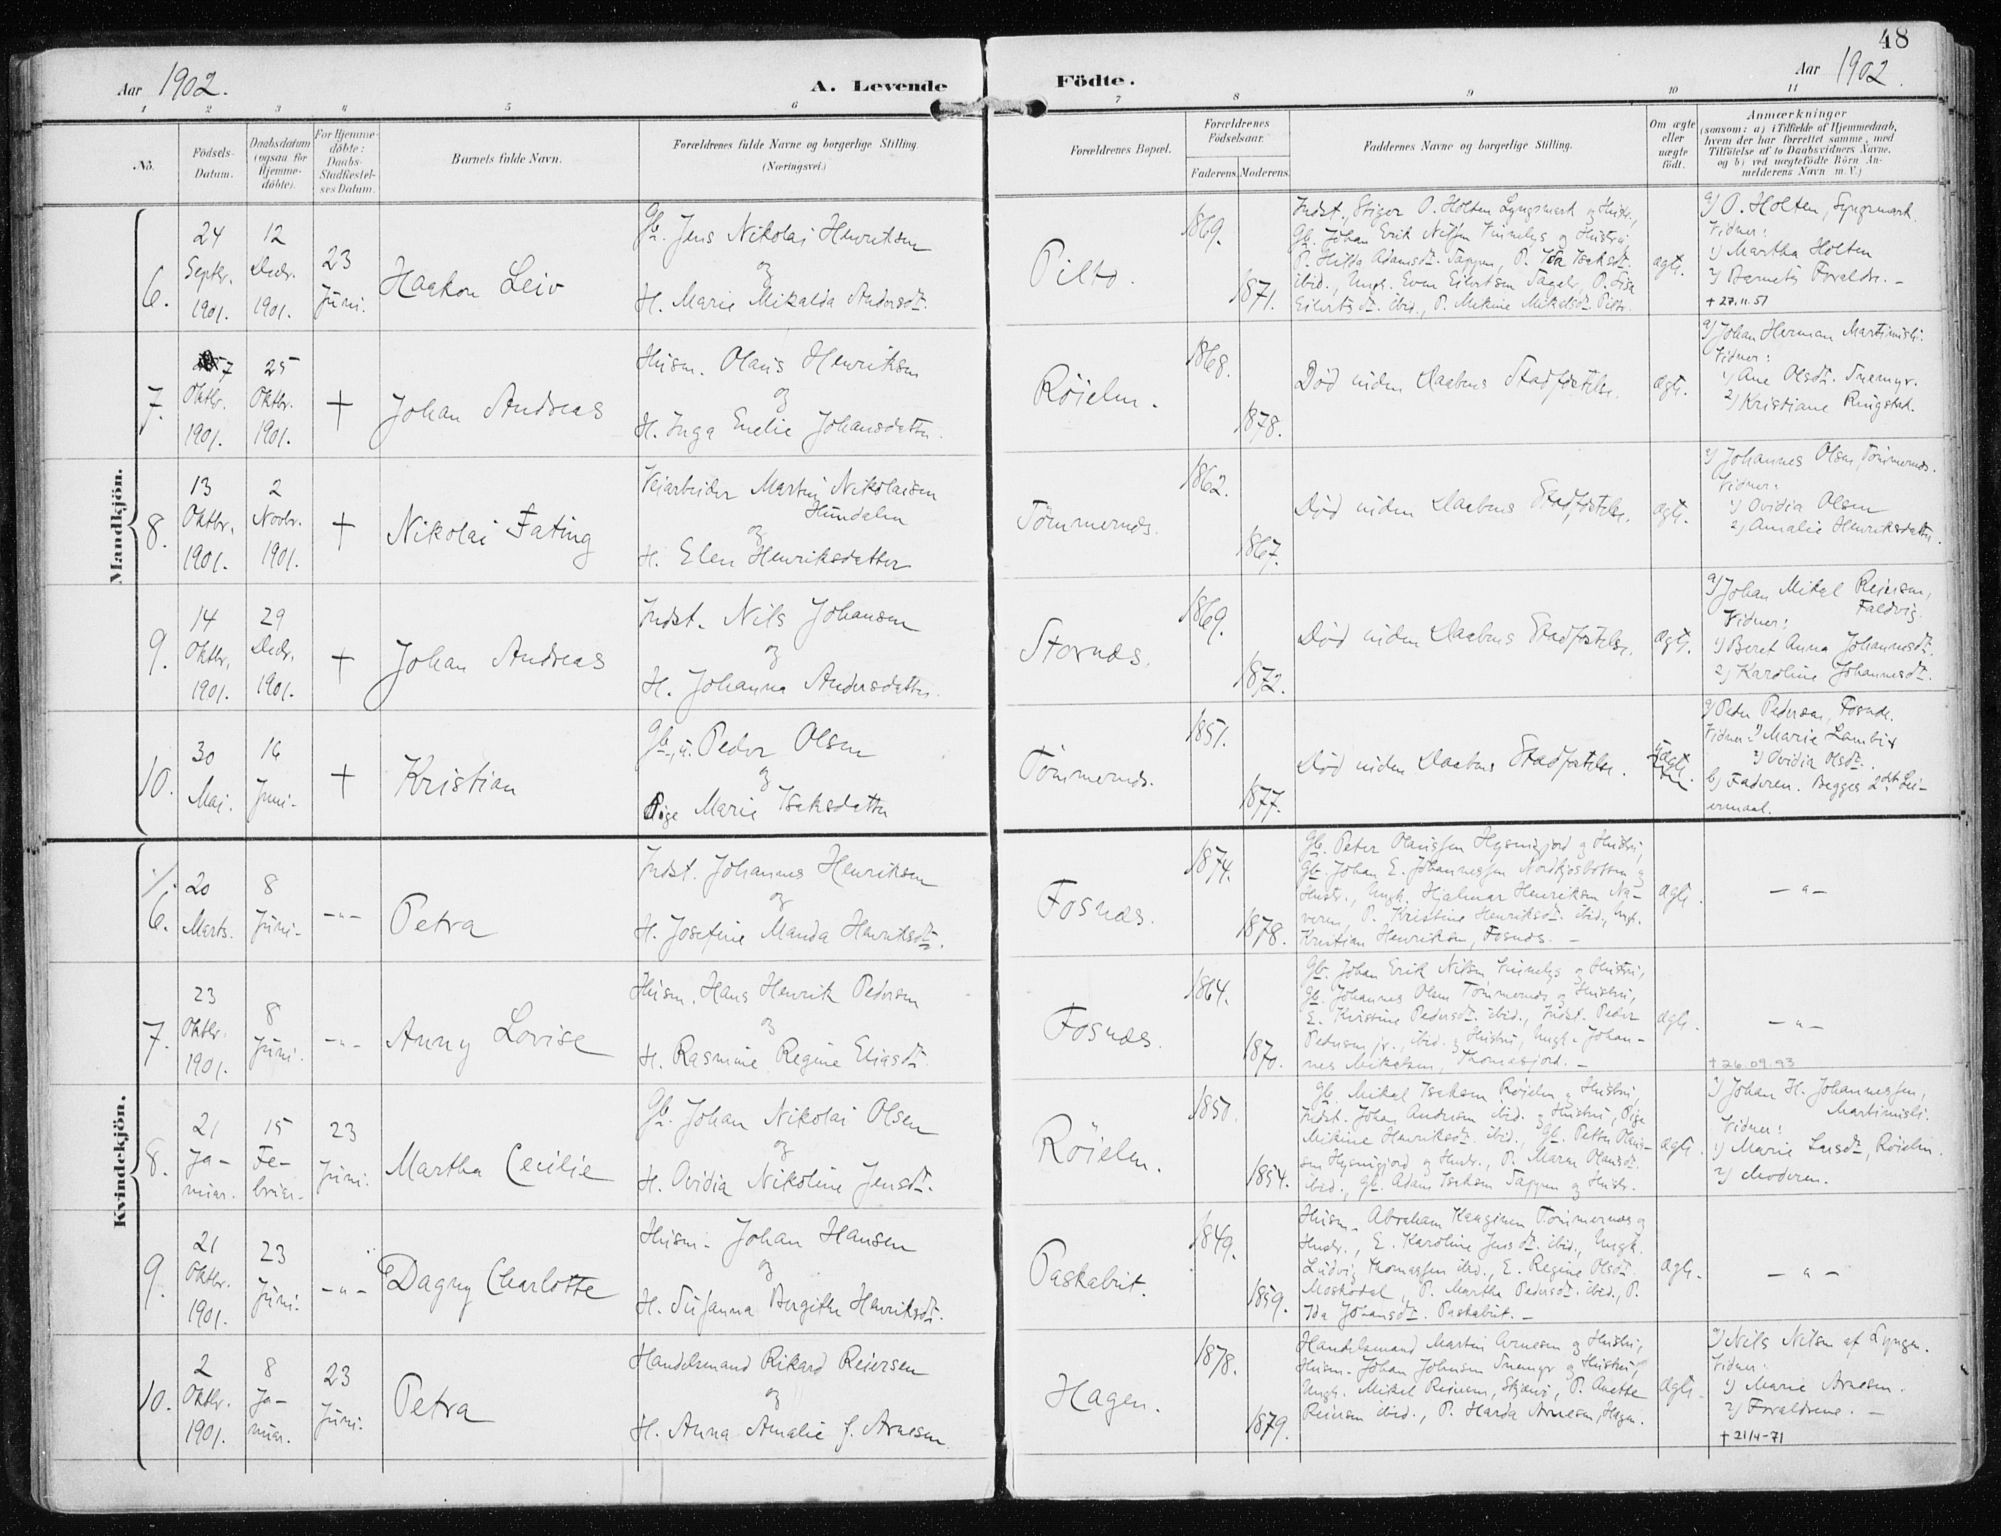 48
Aar 1902.
A. Levende
Födte.
Aar 1902.
1 2 3 4 5 6 7 8 9 10 11
No.
Födsels-
Datum.
Daabsdatum
(ogsaa for
Hjemme-
döbte).
For Hjemme-
döbte:
Daabs-
Stadfæstel-
ses Datum.
Barnets fulde Navn.
Forældrenes fulde Navne og borgerlige Stilling
(Næringsvei.)
Forældrenes Bopæl.
Forældrenes
Födselsaar.
Faderens.
Moderens.
Faddernes Navne og borgerlige Stilling.
Om ægte
eller
uægte
födt.
Anmærkninger
(saasom: a) i Tilfælde af Hjemmedaab,
hvem der har forrettet samme, med
Tilföielse af to Daabsvidners Navne,
og b) ved uægtefödte Börn An-
melderens Navn m. V.)
Mandkjön.
6.
24
Septbr.
1901.
12
Decbr.
1901.
23
Juni.
Haakon Leiv
Gb. Jens Nikolai Henriksen
og
H. Marie Mikalda Andersdt.
Pilto.
1869.
1871.
Indst., Stiger O. Holten Lyngsmark og Hustr.,
Gb. Johan Erik Nilsen og Hustru,
ibid., Ungk. Even Eilertsen
Eilertsdt. ibid., P. Mekine Mikelsdt. Pilto.
ægte.
a) O. Holten, Lyngsmark.
Vidner:
1) Martha Holten
2) Barnets Forældre. -
+ 27.11.51
7.
7
Oktbr.
1901.
25
Oktbr.
1901.
+
Johan Andreas
Husm. Olaus Henriksen
og
H. Inga Emelie Johansdatter.
Röielen.
1868.
1878.
Död inden Daabens Stadfæstelse.
ægte.
a) Johan Herman Martimisli.
Vidner:
1) Ane Olsdt. Snemyr.
2) Kristiane
8.
13
Oktbr.
1901.
2
Novbr.
1901.
+
Nikolai Fating
Veiarbeider Martin Nikolaisen
Hundalen
og
H. Elen Henriksdatter
Tömmernes.
1862.
1867.
Död inden Daabens Stadfæstelse.
ægte.
a) Johannes Olsen, Tömmernes.
Vidner:
1) Ovidia Olsen
2) Amalie Henriksdatter.
9.
14
Oktbr.
1901.
29
Decbr.
1901.
+
Johan Andreas
Indst. Nils Johansen
og
H. Johanna Andersdatter.
Stornes.
1869.
1872.
Död inden Daabens Stadfæstelse.
ægte.
a) Johan Mikal Reiersen,
Faldvig.
Vidner:
1) Beret Anna Johannesdt.
2) Karoline Johannesdt.
10.
30
Mai.
16
Juni.
+
Kristian
Gb., u. Peder Olsen
og
Pige Marie Isaksdatter
Tömmernes.
1851.
1877.
Död inden Daabens Stadfæstelse.
Uægte.
a) Peder Pedersen, Fosnæs.
Vidner: 1) Marie
2) Ovidia Olsdt.
b) Faderen. Begges 2det Lei-
ermaal.
Kvindekjön.
6.
20
Marts.
8
Juni.
-"-
Petra
Indst. Johannes Henriksen
og
H. Josefine Manda Henriksdt.
Fosnæs.
1874.
1878.
Gb. Peter Olaussen og Hustru,
Gb. Johan E. Johannessen Nordkjosbotten og
Hustr., Ungk. Hjalmar Henriksen Na-
veren, P. Kristine Henriksdt. ibid., Ungk.
Kristian Henriksen, Fosnæs. -
ægte.
-"-
7.
23
Oktbr.
1901.
8
Juni.
-"-
Anny Lovise
Husm. Hans Henrik Pedersen
og
H. Rasmine Regine Eliasdt.
Fosnæs.
1864.
1870.
Gb. Johan Erik Nilsen og Hustru,
Gb. Johannes Olsen Tömmernes og Hustru,
E. Kristine Pedersdt. ibid., Indst. Peder
Pedersen jr., ibid. og Hustru, Ungk. Johan-
nes Mikelsen, Thomasjord. -
ægte.
-"-
+ 26.09.93
8.
21
Ja-
nuar.
15
Fe-
bruar.
23
Juni.
Martha Cecilie
Gb. Johan Nikolai Olsen
og
H. Ovidia Nikoline Jensdt.
Röielen.
1850.
1854.
Gb. Mikal Isaksen Röielen og Hustru,
Indst. Johan Andersen ibid. og Hustru, Pige
Mikine Henriksdt. ibid., Gb. Petter Olaus-
sen og Hustr., P. Maren Olausdt.
ibid., Gb. Adam Isaksen og Hustr.
ægte.
a) Johan H. Johannessen,
Martimisli.
Vidner:
1) Marie Larsdt., Röielen.
2) Moderen.
9.
21
Oktbr.
1901.
23
Juni.
-"-
Dagny Charlotte
Husm. Johan Hansen
og
H. Susanna Bergithe Henriksdt.
Paskabut.
1849.
1859.
Husm. Abraham Haagensen Tömmernes og
Hustr., E. Karoline Jensdt. ibid., Ungk.
Ludvig Thomassen ibid., E. Regine Olsdt.
Moskodal, P. Martha Pedersdt. ibid., P.
Ida Johansdt. Paskabut. -
ægte.
-"-
10.
2
Oktbr.
1901.
8
Ja-
nuar.
23
Juni.
Petra
Handelsmand Rikard Reiersen
og
H. Anna Amalie f. Arnesen.
Hagen.
1878.
1879.
Handelsmand Martin Arnesen og Hustru,
Husm. Johan Johnsen Snemyr og Hustru,
Ungk. Mikel Reiersen, P. Anette
Reiersen ibid., P. Harda Arnesen, Hagen.
ægte.
a) Nils Nilsen af Lyngen.
Vidner:
1) Marie Arnesen.
2) Forældrene. -
+ 21/4-71